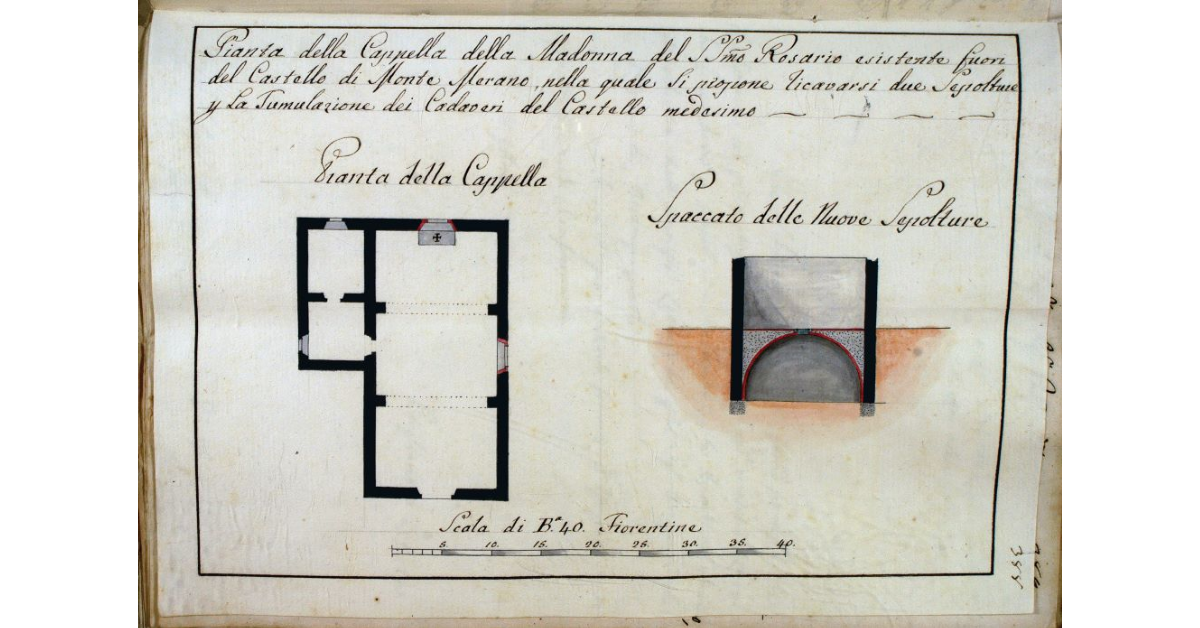 Pianta della Cappella della Madonna del SSmo Rosario esistente fuori
del Castello di Monte Merano, nella quale Si propone ricavarsi due Sepolture
p La Tumulazione dei Cadaveri del Castello medesimo
Pianta della Cappella
Spaccato delle Nuove Sepolture
Scala di B.a 40. Fiorentine
5. 10. 15. 20. 25. 30. 35. 40.